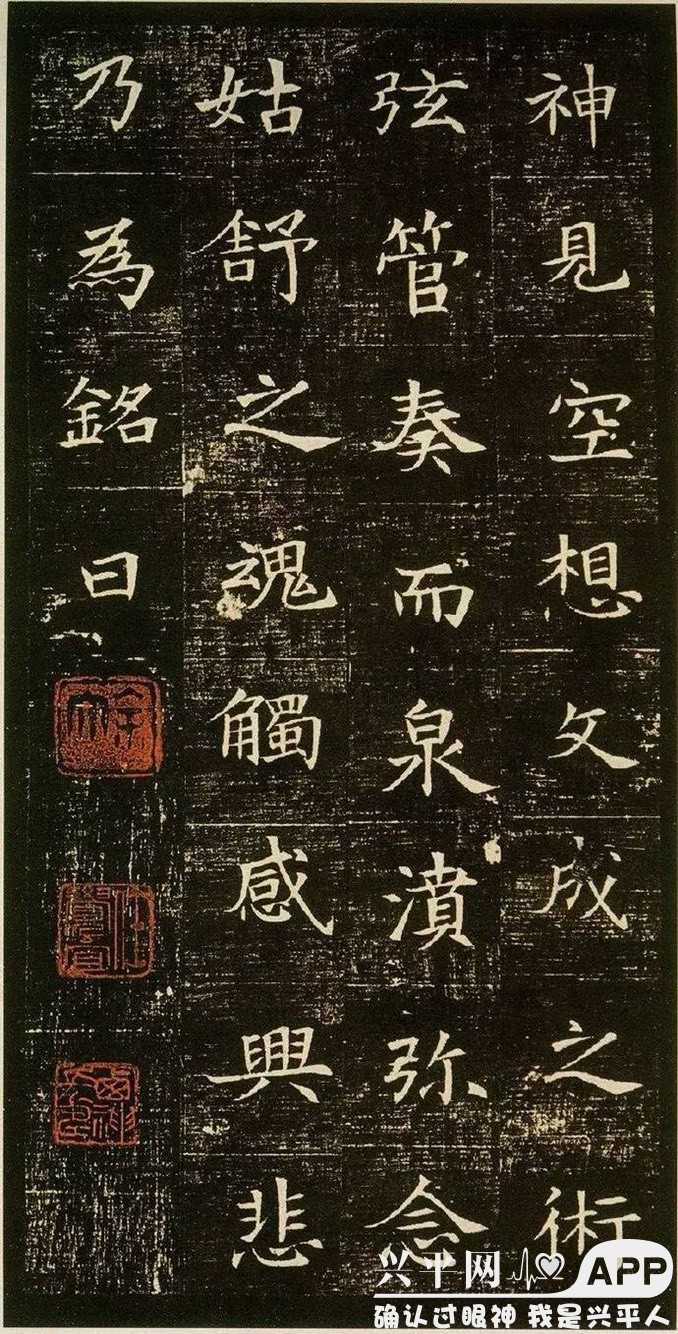 神見空想文成之術
弦管奏而泉濆弥念
姑舒之魂觸感興悲
乃為銘曰
兴平网 APP
确认过眼神 我是兴平人